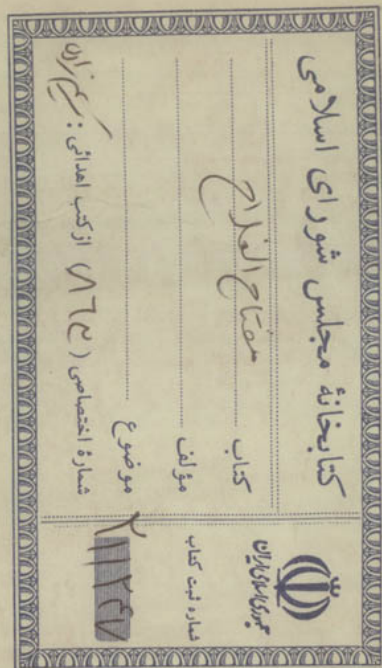 کتابخانهٔ مجلس شورای اسلامی
کتاب مفتاح الفلاح
مؤلف
موضوع
شمارهٔ اختصاصی ( ) از کتب اهدائی :
جمهوری اسلامی ایران
شماره ثبت کتاب